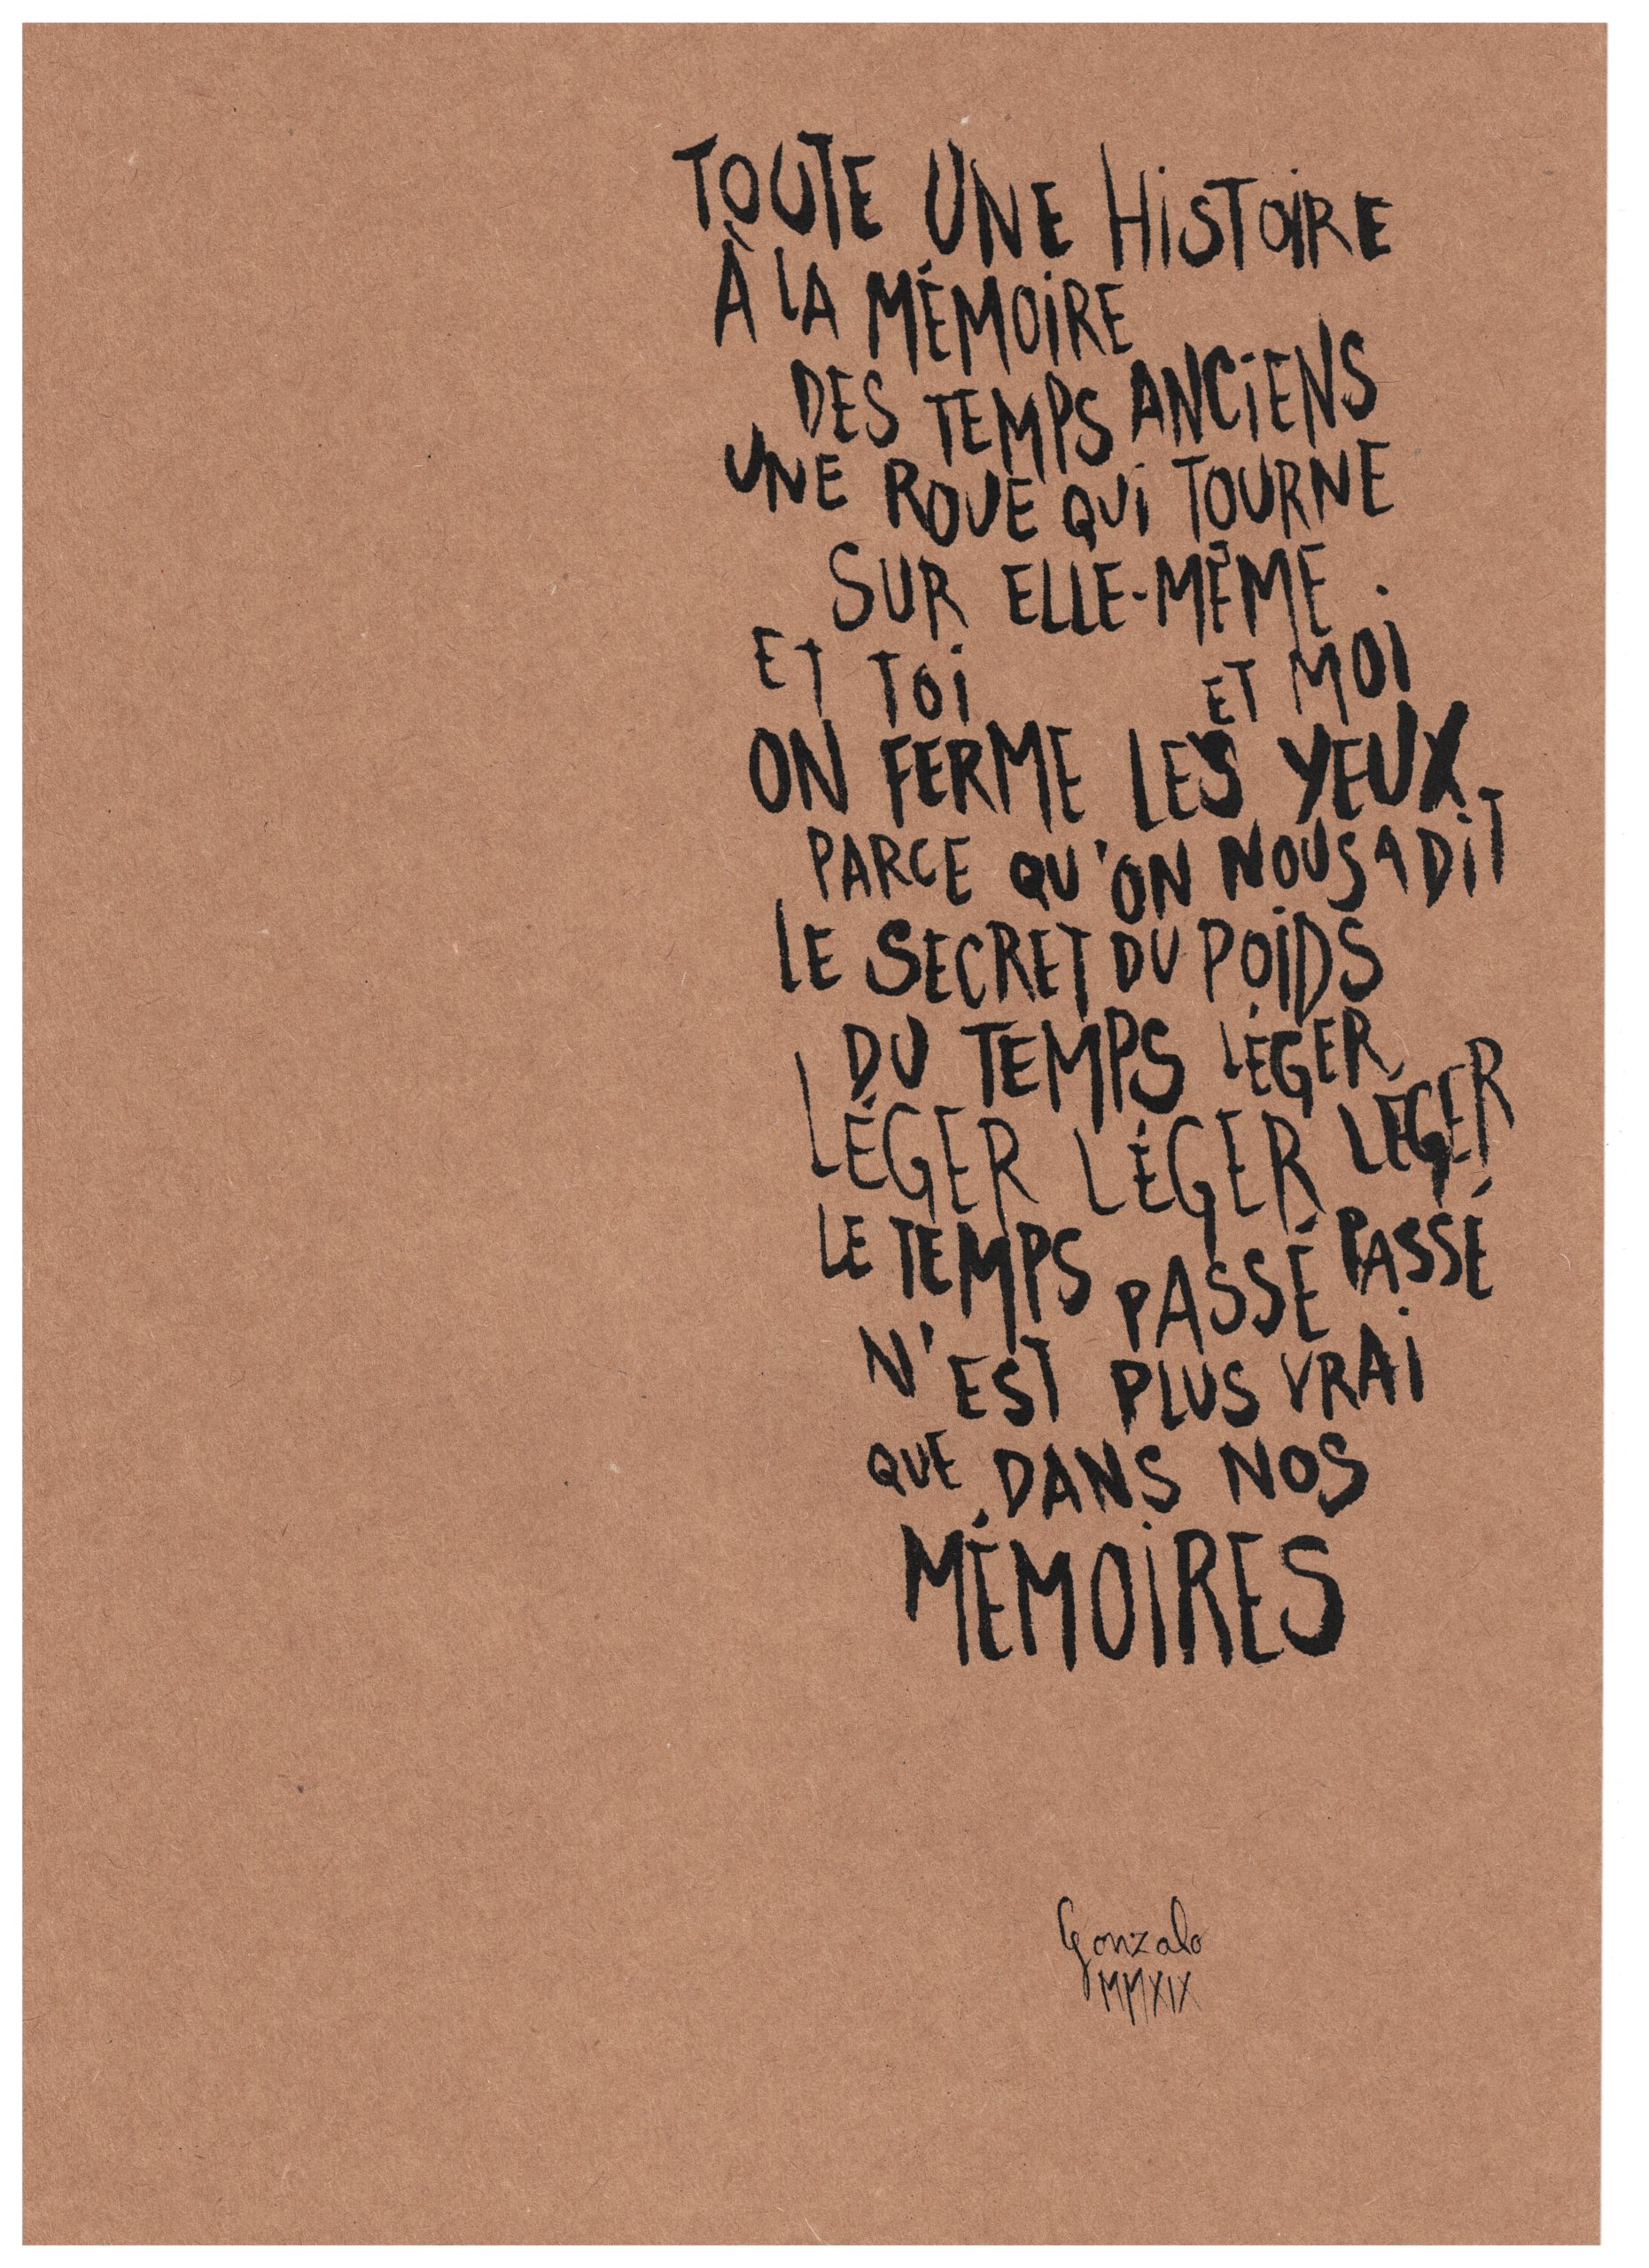 TOUTE UNE HiSTOiRE
À LA MÉMOiRE
DES TEMPS ANCiENS
UNE ROUE QUi TOURNE
SUR ELLE-MÊME.
ET TOi ET MOI
ON FERME LES YEUX
PARCE QU'ON NOUS A DiT
LE SECRET DU POiDS
DU TEMPS LÉGER,
LÉGER LÉGER LÉGER
LE TEMPS PASSÉ PASSÉ
N'EST PLUS VRAi
QUE DANS NOS
MÉMOiRES
Gonzalo
MMXIX